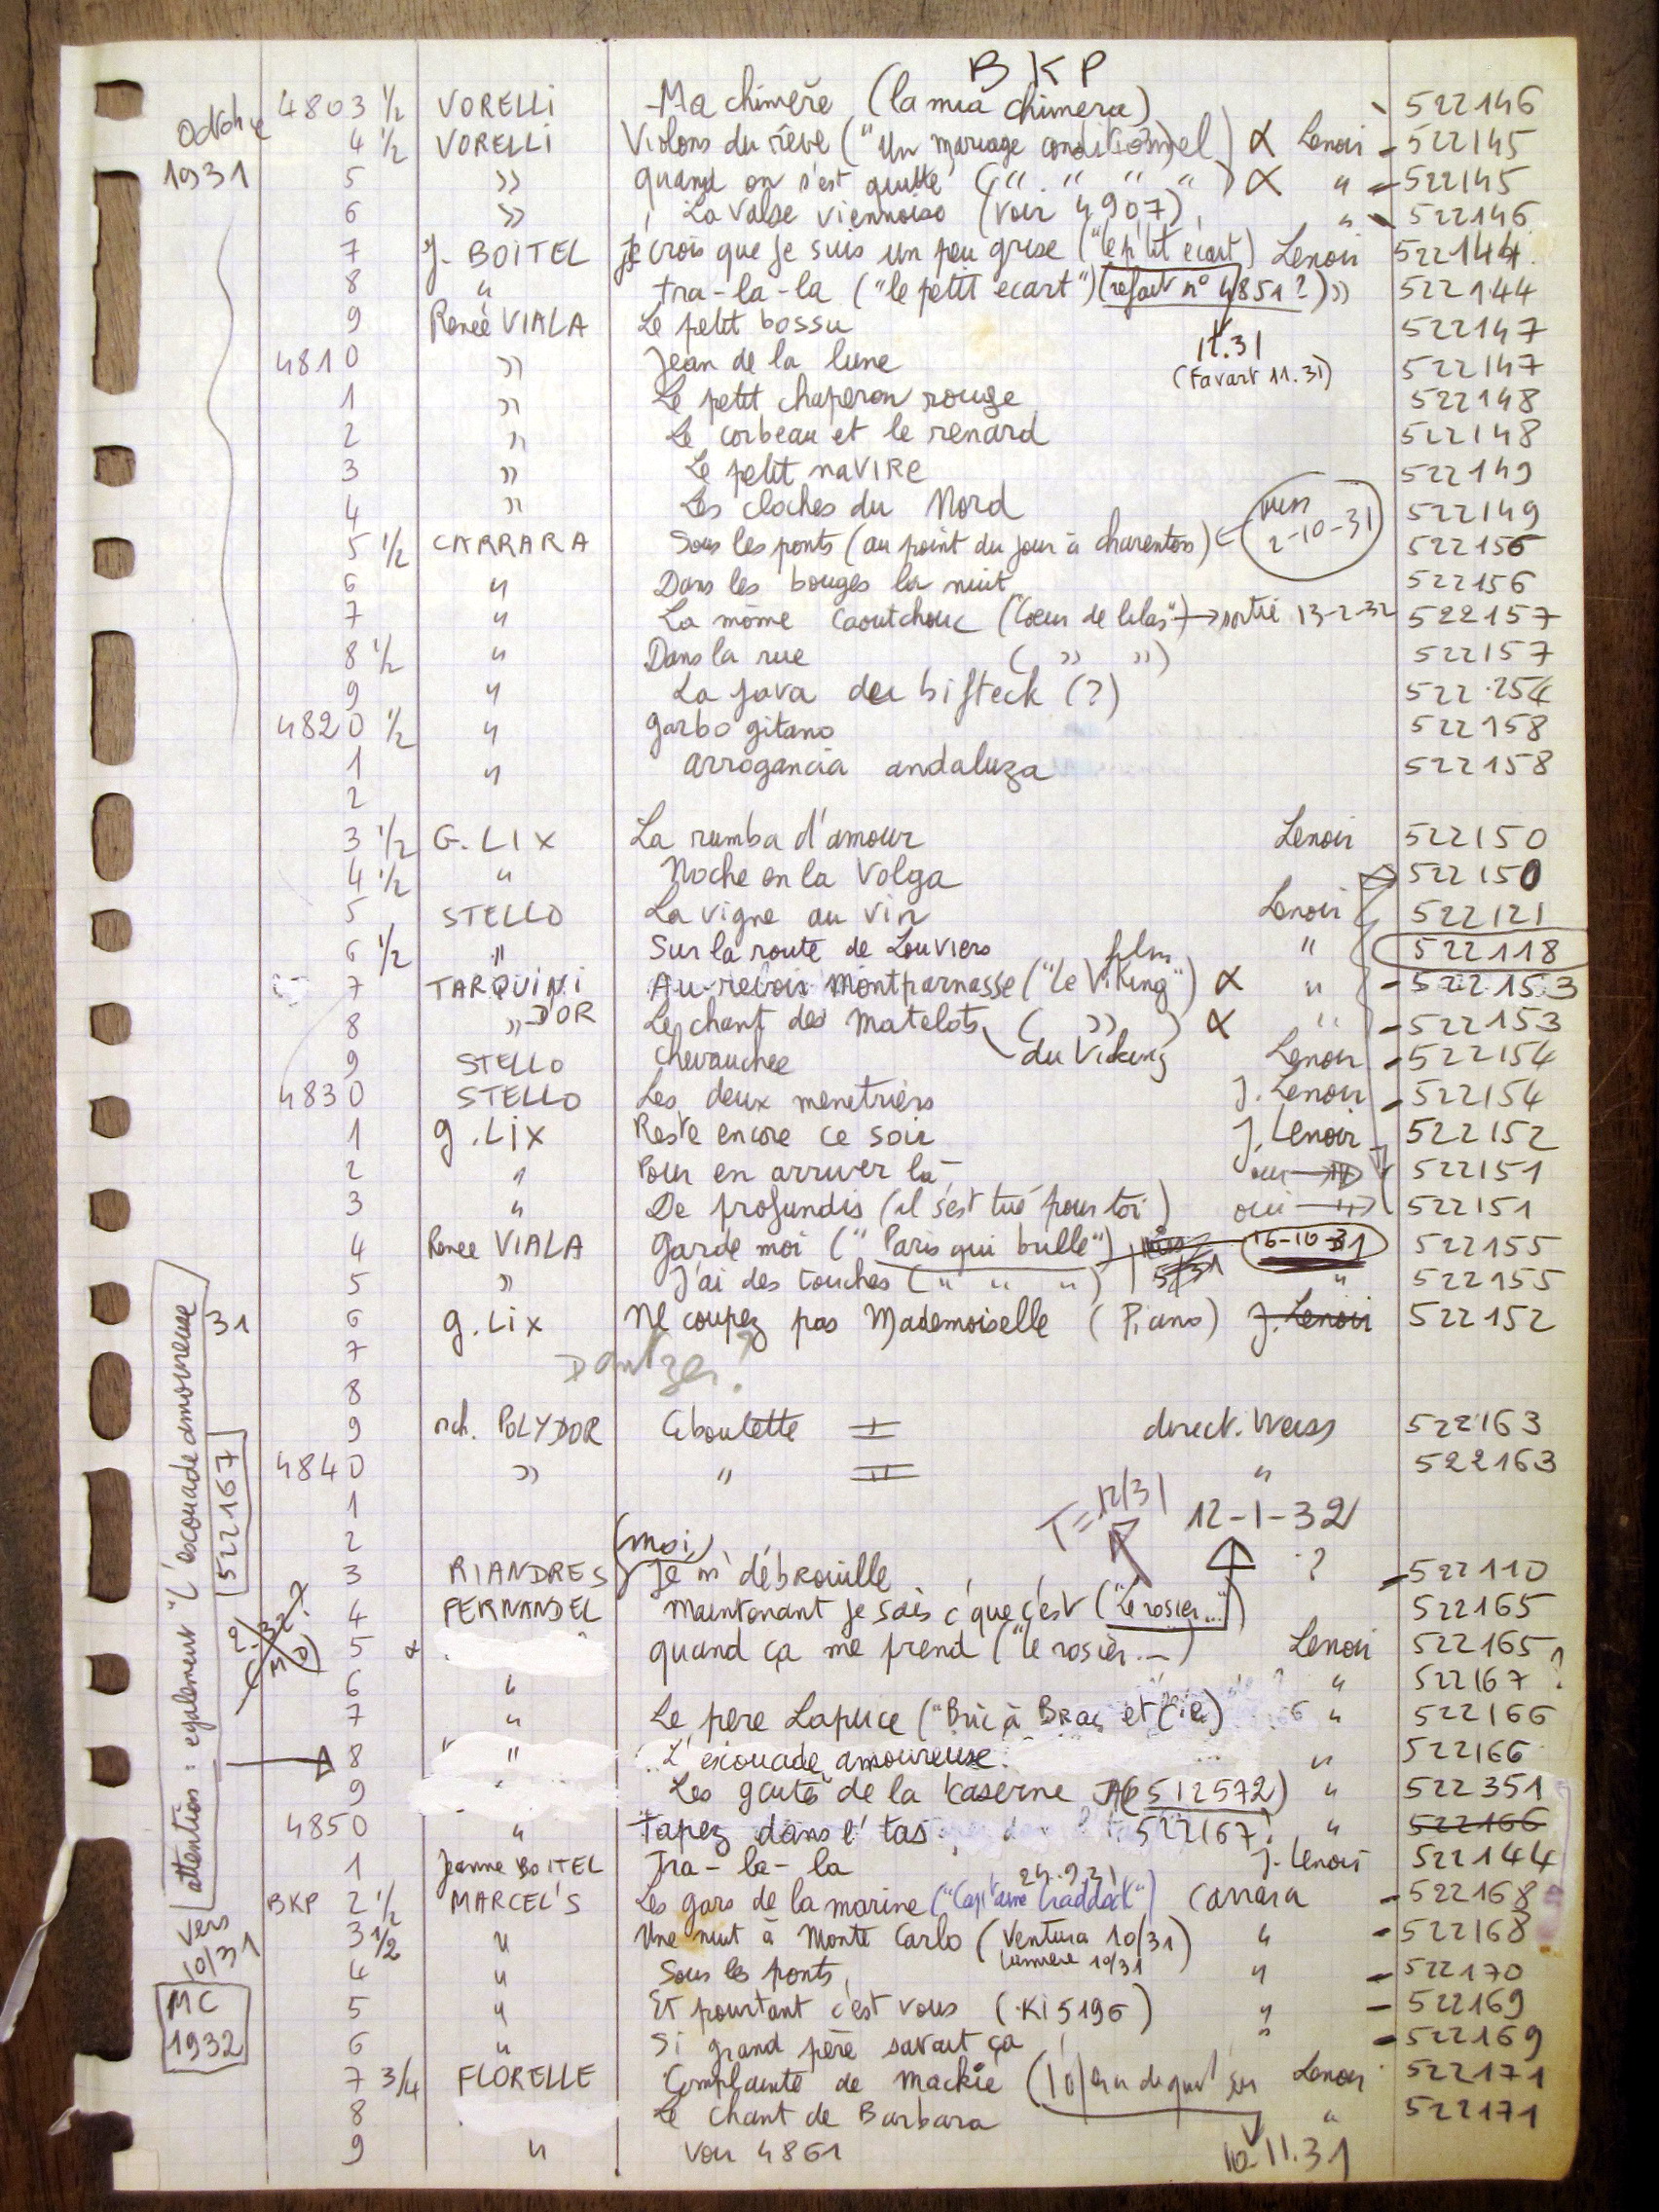 BKP
4803 1/2 VORELLI Ma chimère (la mia chimera) 522146
Octobre 1931
4 1/2 VORELLI Violons du rêve ("Un mariage conditionnel) α Lenoir - 522145
5 » quand on s'est quitté (" " " ") α " - 522145
6 » La valse viennoise (voir 4907) " 522146
7 J. BOITEL Je crois que je suis un peu grise ("le p'tit écart) Lenoir 522144
8 " tra-la-la ("le petit ecart") (refait n° 4851?) » 522144
9 Renée VIALA Le petit bossu 522147
11.31
4810 » Jean de la lune 522147
(Favart 11.31)
1 » Le petit chaperon rouge 522148
2 » Le corbeau et le renard 522148
3 » Le petit naVIRe 522149
4 » Les cloches du Nord 522149
5 1/2 CARRARA Sous les ponts (au point du jour à charenton) 2-10-31 522156
6 " Dans les bouges la nuit 522156
7 " La môme caoutchouc ("Coeur de lilas") → sortie 13-2-32 522157
8 1/2 " Dans la rue ( » ») 522157
9 " La java du bifteck (?) 522254
4820 1/2 " garbo gitano 522158
1 " arrogancia andaluza 522158
2
3 1/2 G. LIX La rumba d'amour Lenoir 522150
4 1/2 " Noche en la Volga 522150
5 STELLO La vigne au vin Lenoir 522121
6 1/2 " Sur la route de Louviers " 522118
film
7 TARQUINI Au-revoir Montparnasse ("Le Viking") α " - 522153
DOR
8 » Le chant des matelots ( » ) α " - 522153
du Viking
9 STELLO Chevauchée Lenoir - 522154
4830 STELLO Les deux menetriers J. Lenoir - 522154
1 g. LIX Reste encore ce soir J. Lenoir 522152
2 " Pour en arriver là 522151
3 " De profundis (il s'est tué pour toi) oui → 522151
4 Renée VIALA garde moi ("Paris qui brille") 16-10-31 522155
5 » J'ai des touches (" " ") " 522155
6 g. LIX Ne coupez pas Mademoiselle (Piano) J. Lenoir 522152
7
8
9 orch. POLYDOR Ciboulette I direct. Weiss 522163
4840 » " II " 522163
1
T = 12/31 12-1-32
2
(moi)
3 RIANDRES Je m'débrouille ? - 522110
4 FERNANDEL Maintenant je sais c'que c'est ("Le rosier...") 522165
5 α quand ça me prend ("le rosier...) Lenoir 522165
6 " " 522167 ?
7 " Le père Lapuce ("Bric à Brac et Cie) " 522166
8 " L'escouade amoureuse " 522166
9 Les gaités de la caserne (512572) " 522351
4850 " Tapez dans l'tas 522167? " 522166
1 Jeanne BOITEL Tra-la-la J. Lenoir 522144
24.9.31
BKP 2 1/2 MARCEL'S Les gars de la marine ("Capitaine Craddock") Carrara - 522168
3 1/2 " Une nuit à Monte Carlo (Ventura 10/31) " - 522168
Lumiere 10/31
4 " Sous les ponts " - 522170
5 " Et pourtant c'est vous (Ki 5196) " - 522169
6 " Si grand père savait ça » - 522169
7 3/4 FLORELLE Complainte de Mackie Lenoir 522171
8 Le chant de Barbara " 522171
9 " voir 4861
11.31
attention : egalement "L'escouade amoureuse 31
522167
2.32?
vers 10/31
MC
1932